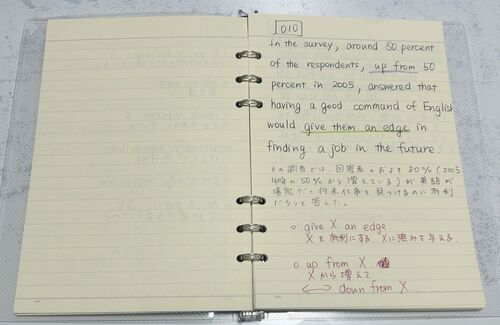 010
In the survey, around 80 percent
of the respondents, up from 50
percent in 2005, answered that
having a good command of English
would give them an edge in
finding a job in the future
その調査では、回答者のおよそ80%(2005
年時の50%から増えている)が英語が
堪能だと将来仕事を見つけるのに有利
だろうと答えた。
○ give X an edge
Xを有利にする、Xに強みを与える
○ up from X.
Xから増えて
↔ down from X.